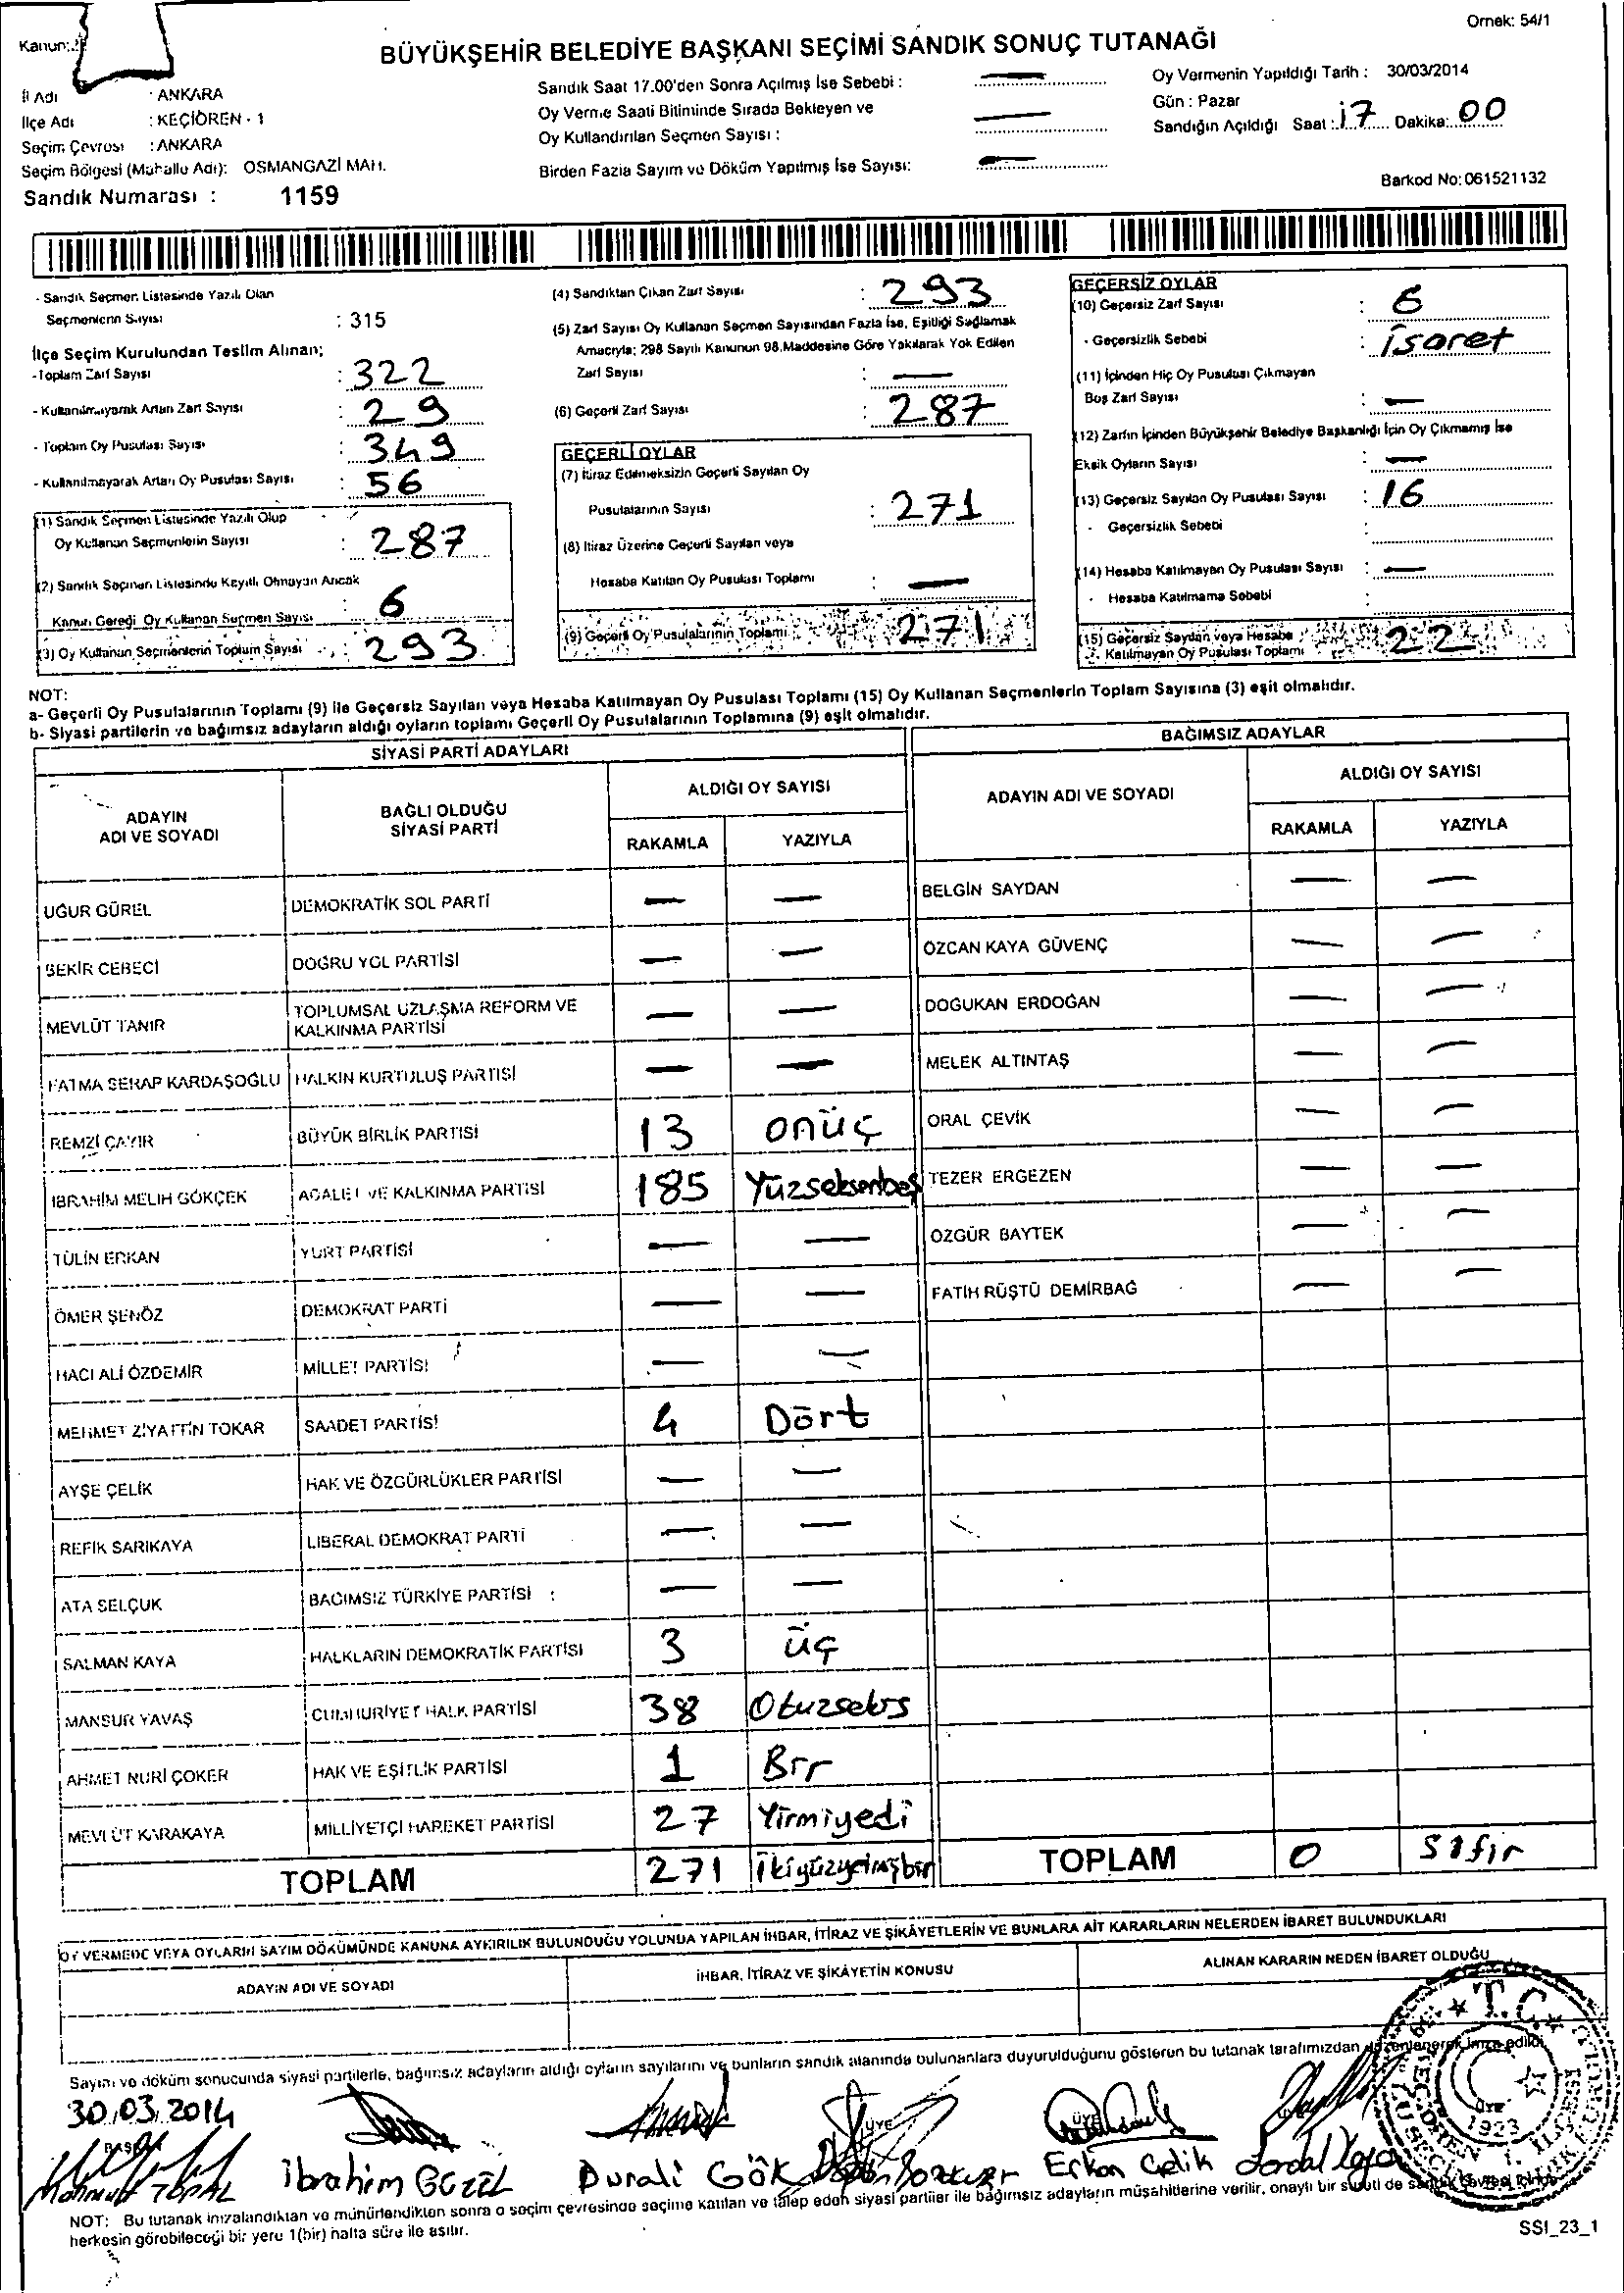 Ornek: 54/1
Kanun:
BÜYÜKŞEHİR BELEDİYE BAŞKANI SEÇİMİ SANDIK SONUÇ TUTANAĞI
İl Adı : ANKARA
İlçe Adı : KEÇİÖREN - 1
Seçim Çevresi : ANKARA
Seçim Bölgesi (Mahalle Adı): OSMANGAZİ MAH.
Sandık Numarası : 1159
Sandık Saat 17.00'den Sonra Açılmış İse Sebebi : —
Oy Verme Saati Bitiminde Sırada Bekleyen ve
Oy Kullandırılan Seçmen Sayısı : —
Birden Fazla Sayım ve Döküm Yapılmış İse Sayısı: —
Oy Vermenin Yapıldığı Tarih : 30/03/2014
Gün : Pazar
Sandığın Açıldığı Saat : 17 Dakika: 00
Barkod No: 061521132
- Sandık Seçmen Listesinde Yazılı Olan
Seçmenlerin Sayısı : 315
İlçe Seçim Kurulundan Teslim Alınan;
- Toplam Zarf Sayısı : 322
- Kullanılmayarak Artan Zarf Sayısı : 29
- Toplam Oy Pusulası Sayısı : 349
- Kullanılmayarak Artan Oy Pusulası Sayısı : 56
(1) Sandık Seçmen Listesinde Yazılı Olup
Oy Kullanan Seçmenlerin Sayısı : 287
(2) Sandık Seçmen Listesinde Kayıtlı Olmayan Ancak
Kanun Gereği Oy Kullanan Seçmen Sayısı : 6
(3) Oy Kullanan Seçmenlerin Toplam Sayısı : 293
(4) Sandıktan Çıkan Zarf Sayısı : 293
(5) Zarf Sayısı Oy Kullanan Seçmen Sayısından Fazla İse, Eşitliği Sağlamak
Amacıyla; 298 Sayılı Kanunun 98.Maddesine Göre Yakılarak Yok Edilen
Zarf Sayısı : —
(6) Geçerli Zarf Sayısı : 287
GEÇERLİ OYLAR
(7) İtiraz Edilmeksizin Geçerli Sayılan Oy
Pusulalarının Sayısı : 271
(8) İtiraz Üzerine Geçerli Sayılan veya
Hesaba Katılan Oy Pusulası Toplamı : —
(9) Geçerli Oy Pusulalarının Toplamı : 271
GEÇERSİZ OYLAR
(10) Geçersiz Zarf Sayısı : 6
- Geçersizlik Sebebi : işaret
(11) İçinden Hiç Oy Pusulası Çıkmayan
Boş Zarf Sayısı : —
(12) Zarfın İçinden Büyükşehir Belediye Başkanlığı İçin Oy Çıkmamış İse
Eksik Oyların Sayısı : —
(13) Geçersiz Sayılan Oy Pusulası Sayısı : 16
- Geçersizlik Sebebi :
(14) Hesaba Katılmayan Oy Pusulası Sayısı : —
- Hesaba Katılmama Sebebi :
(15) Geçersiz Sayılan veya Hesaba
Katılmayan Oy Pusulası Toplamı : 22
NOT:
a- Geçerli Oy Pusulalarının Toplamı (9) ile Geçersiz Sayılan veya Hesaba Katılmayan Oy Pusulası Toplamı (15) Oy Kullanan Seçmenlerin Toplam Sayısına (3) eşit olmalıdır.
b- Siyasi partilerin ve bağımsız adayların aldığı oyların toplamı Geçerli Oy Pusulalarının Toplamına (9) eşit olmalıdır.
SİYASİ PARTİ ADAYLARI
ADAYIN ADI VE SOYADI BAĞLI OLDUĞU SİYASİ PARTİ ALDIĞI OY SAYISI RAKAMLA YAZIYLA
UĞUR GÜREL DEMOKRATİK SOL PARTİ — —
BEKİR CEBECİ DOĞRU YOL PARTİSİ — —
MEVLÜT TANIR TOPLUMSAL UZLAŞMA REFORM VE KALKINMA PARTİSİ — —
FATMA SERAP KARDAŞOĞLU HALKIN KURTULUŞ PARTİSİ — —
REMZİ ÇAYIR BÜYÜK BİRLİK PARTİSİ 13 onüç
İBRAHİM MELİH GÖKÇEK ADALET VE KALKINMA PARTİSİ 185 Yüzseksenbeş
TÜLİN ERKAN YURT PARTİSİ — —
ÖMER ŞENÖZ DEMOKRAT PARTİ — —
HACI ALİ ÖZDEMİR MİLLET PARTİSİ — —
MEHMET ZİYATTİN TOKAR SAADET PARTİSİ 4 Dört
AYŞE ÇELİK HAK VE ÖZGÜRLÜKLER PARTİSİ — —
REFİK SARIKAYA LİBERAL DEMOKRAT PARTİ — —
ATA SELÇUK BAĞIMSIZ TÜRKİYE PARTİSİ — —
SALMAN KAYA HALKLARIN DEMOKRATİK PARTİSİ 3 üç
MANSUR YAVAŞ CUMHURİYET HALK PARTİSİ 38 Otuzsekis
AHMET NURİ ÇOKER HAK VE EŞİTLİK PARTİSİ 1 Bir
MEVLÜT KARAKAYA MİLLİYETÇİ HAREKET PARTİSİ 27 Yirmiyedi
TOPLAM 271 ikiyüzyetmişbir
BAĞIMSIZ ADAYLAR
ADAYIN ADI VE SOYADI ALDIĞI OY SAYISI RAKAMLA YAZIYLA
BELGİN SAYDAN — —
ÖZCAN KAYA GÜVENÇ — —
DOĞUKAN ERDOĞAN — —
MELEK ALTINTAŞ — —
ORAL ÇEVİK — —
TEZER ERGEZEN — —
ÖZGÜR BAYTEK — —
FATİH RÜŞTÜ DEMİRBAĞ — —
TOPLAM 0 Sıfır
OY VERMEDE VEYA OYLARIN SAYIM DÖKÜMÜNDE KANUNA AYKIRILIK BULUNDUĞU YOLUNDA YAPILAN İHBAR, İTİRAZ VE ŞİKÂYETLERİN VE BUNLARA AİT KARARLARIN NELERDEN İBARET BULUNDUKLARI
ADAYIN ADI VE SOYADI İHBAR, İTİRAZ VE ŞİKÂYETİN KONUSU ALINAN KARARIN NEDEN İBARET OLDUĞU
Sayım ve döküm sonucunda siyasi partilerle, bağımsız adayların aldığı oyların sayılarını ve bunların sandık alanında bulunanlara duyurulduğunu gösteren bu tutanak tarafımızdan düzenlenerek imza edildi.
30.03.2014
BAŞKAN ÜYE ÜYE ÜYE
Mahmut TOPAL İbrahim GÜZEL Durali GÖK Bozkurt Erkan Çelik
T.C. 1923
NOT: Bu tutanak imzalandıktan ve mühürlendikten sonra o seçim çevresinde seçime katılan ve talep eden siyasi partiler ile bağımsız adayların müşahitlerine verilir, onaylı bir sureti de sandık çevresi içinde
herkesin görebileceği bir yere 1(bir) hafta süre ile asılır.
SSI_23_1